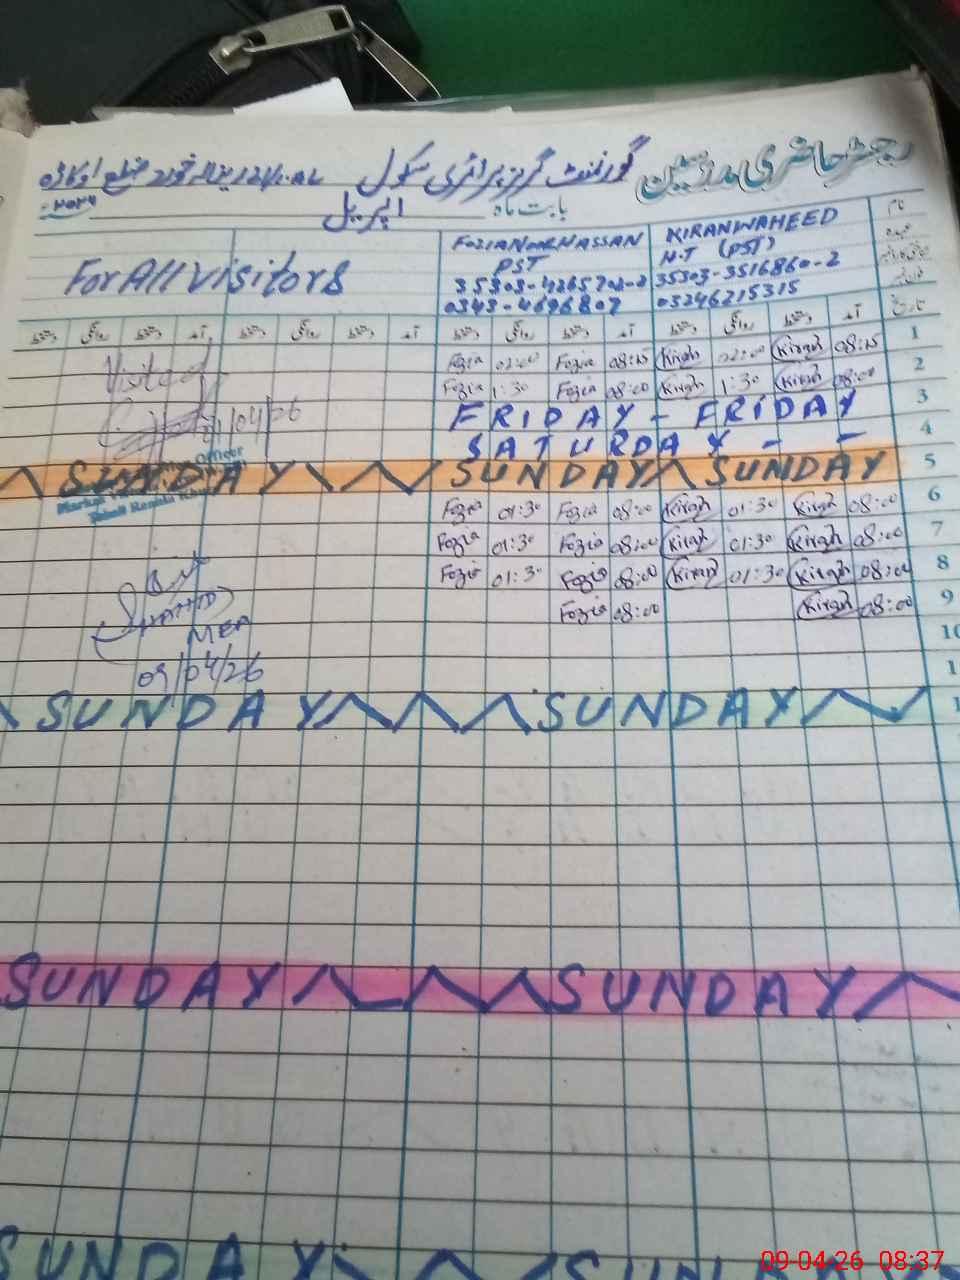 رجسٹر حاضری مدرسین
گورنمنٹ گرلز پرائمری سکول
ضلع اوکاڑہ
بابت ماہ اپریل ۲۰۲۶
نام
عہدہ
KIRAN WAHEED
H.T (PST)
35303-3516860-2
03246215315
HASSAN
PST
For All Visitors
تاریخ آمد دستخط روانگی دستخط آمد دستخط روانگی دستخط آمد دستخط روانگی دستخط آمد دستخط روانگی دستخط
Fozia 02:00 Fozia 08:15 Kiran 02:00 Kiran 08:15 1
Fozia 1:30 Fozia 08:00 Kiran 1:30 Kiran 08:00 2
FRIDAY - FRIDAY 3
SATURDAY - - 4
SUNDAY SUNDAY SUNDAY 5
Fozia 01:30 Fozia 08:00 Kiran 01:30 Kiran 08:00 6
Fozia 01:30 Fozia 08:00 Kiran 01:30 Kiran 08:00 7
Fozia 01:30 Fozia 08:00 Kiran 01:30 Kiran 08:00 8
Fozia 08:00 Kiran 08:00 9
10
1
SUNDAY SUNDAY 1
SUNDAY SUNDAY
SUNDAY SUN
Visited
01/04/26
Officer
Markaz
Tehsil Renala Khurd
SHAHID
MEA
09/04/26
09-04-26 08:37